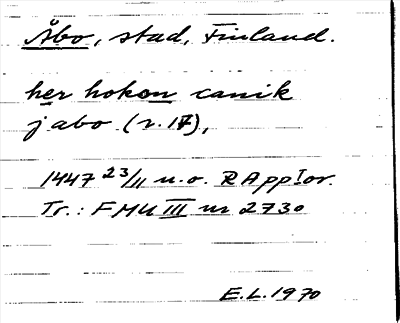 Åbo, stad, Finland.
her hokon canik
j abo (r. 17),
1447 23/11 u.o. RAppIor.
Tr.: FMU III nr 2730
E.L. 1970